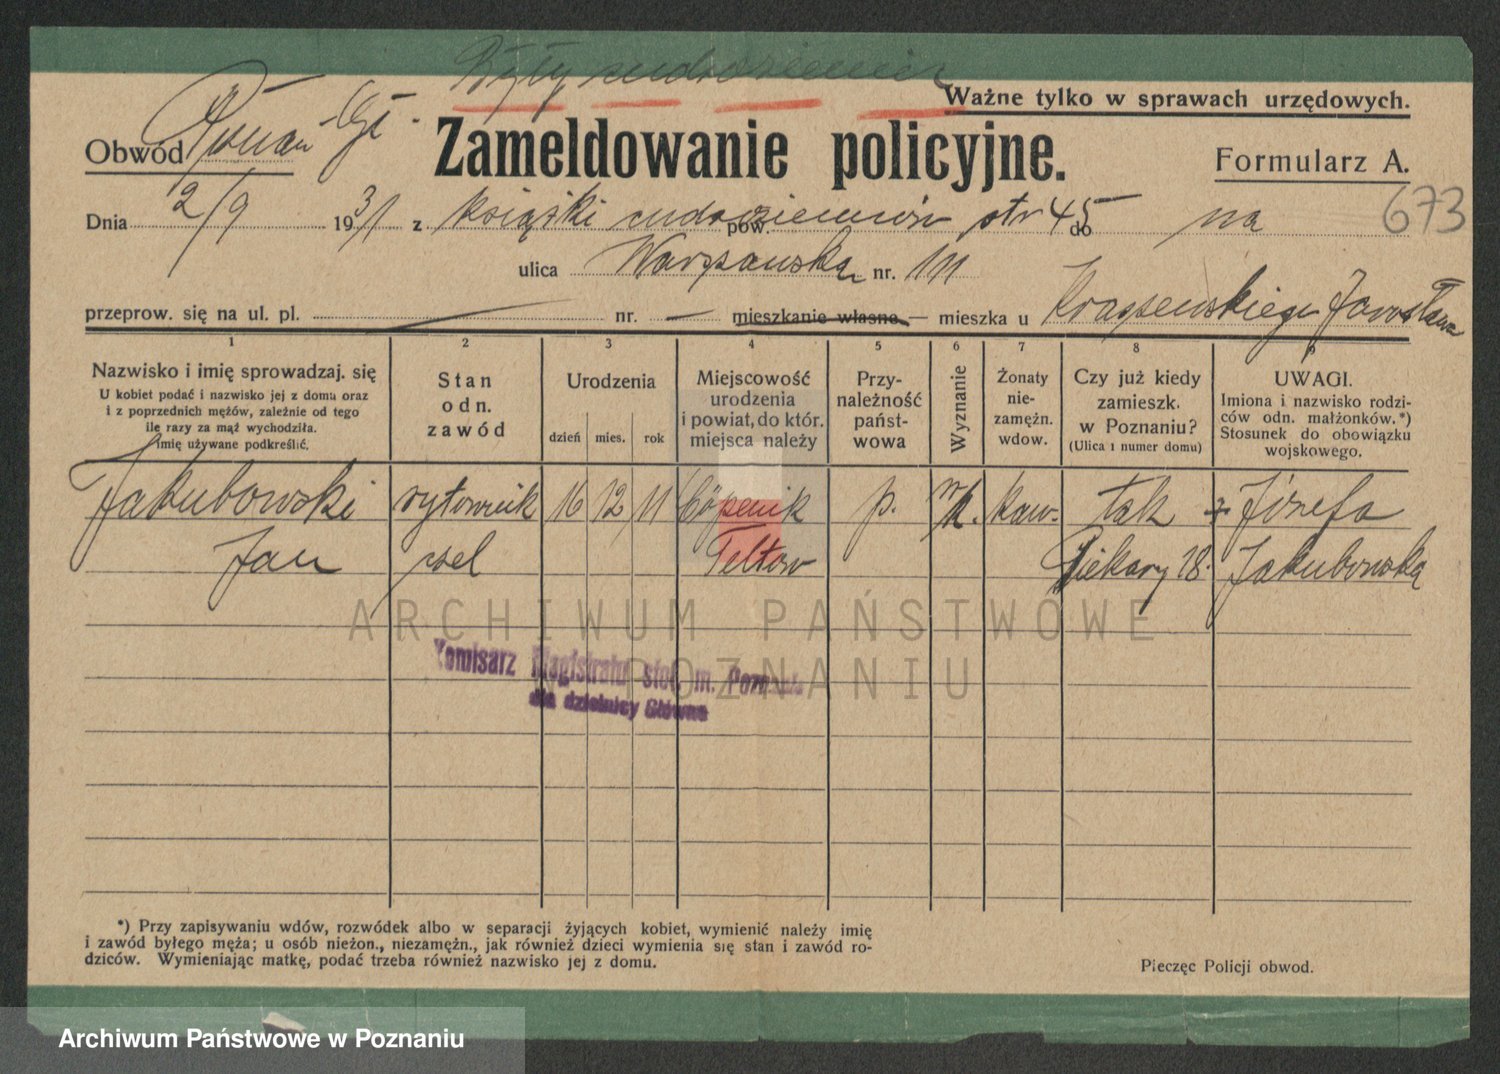 Były cudzoziemiec
Ważne tylko w sprawach urzędowych.
Obwód Poznań - Gł.
Zameldowanie policyjne.
Formularz A.
673
Dnia 2/9 1931 z książki cudzoziemców pow. str 45 do na
ulica Warszawska nr. 111
przeprow. się na ul. pl. — nr. — mieszkanie własne — mieszka u Kraszewskiego Jarosława
1 2 3 4 5 6 7 8 9
Nazwisko i imię sprowadzaj. się
U kobiet podać i nazwisko jej z domu oraz
i z poprzednich mężów, zależnie od tego
ile razy za mąż wychodziła.
Imię używane podkreślić.
Stan
odn.
zawód
Urodzenia
dzień mies. rok
Miejscowość
urodzenia
i powiat, do któr.
miejsca należy
Przy-
należność
państ-
wowa
Wyznanie
Żonaty
nie-
zamężn.
wdow.
Czy już kiedy
zamieszk.
w Poznaniu?
(Ulica i numer domu)
UWAGI.
Imiona i nazwisko rodzi-
ców odn. małżonków.*)
Stosunek do obowiązku
wojskowego.
Jakubowski rytownik 16 12 11 Cöpenik p. rk. kaw. tak Józefa
Jan Teltow Piekary 18. Jakubowska
ARCHIWUM PAŃSTWOWE
W POZNANIU
Komisarz Magistratu stoł. m. Poznania
dla dzielnicy Główna
*) Przy zapisywaniu wdów, rozwódek albo w separacji żyjących kobiet, wymienić należy imię
i zawód byłego męża; u osób nieżon., niezamężn., jak również dzieci wymienia się stan i zawód ro-
dziców. Wymieniając matkę, podać trzeba również nazwisko jej z domu.
Pieczęc Policji obwod.
Archiwum Państwowe w Poznaniu